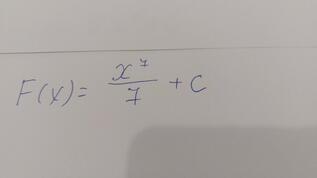 F(x) = x^7/7 + C